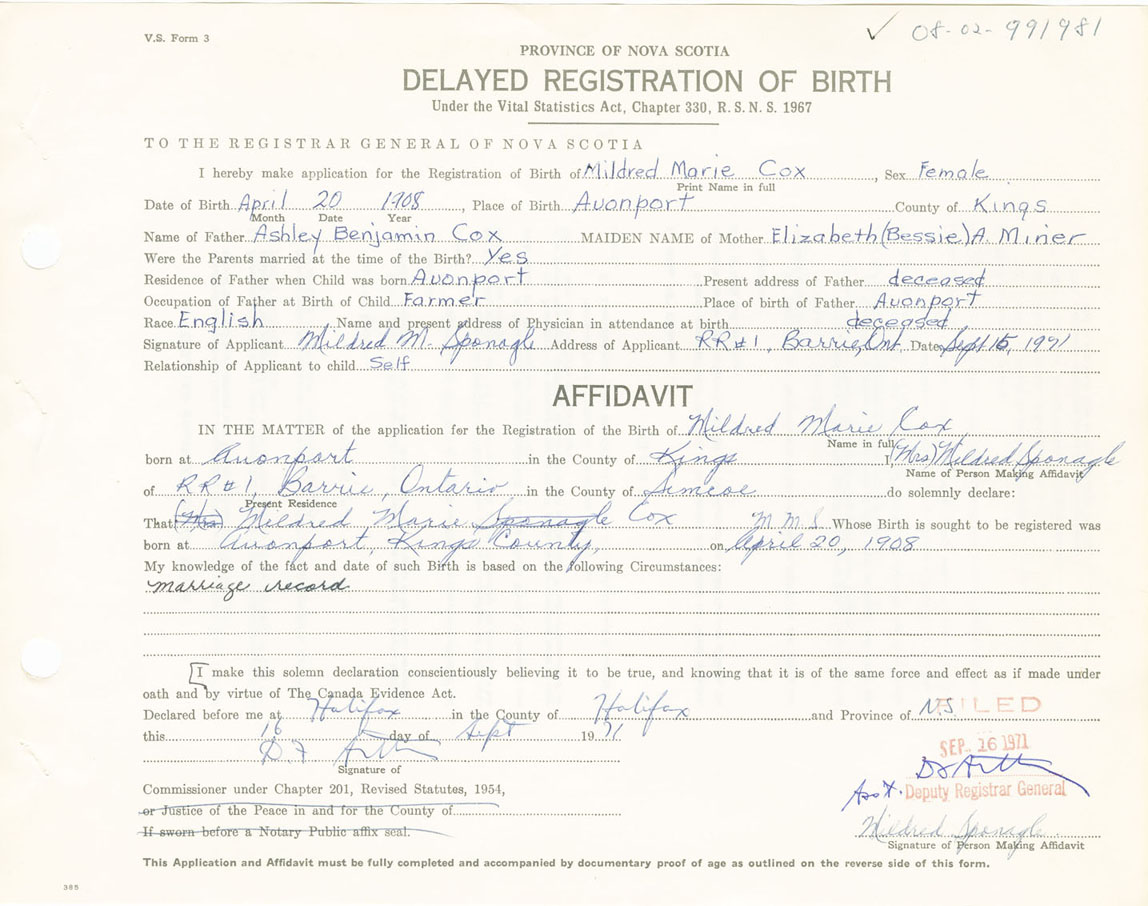 V.S. Form 3
✓ 08-02-991981
PROVINCE OF NOVA SCOTIA
DELAYED REGISTRATION OF BIRTH
Under the Vital Statistics Act, Chapter 330, R.S.N.S. 1967
TO THE REGISTRAR GENERAL OF NOVA SCOTIA
I hereby make application for the Registration of Birth of Mildred Marie Cox, Sex Female
Print Name in full
Date of Birth April 20 1908, Place of Birth Avonport County of Kings
Month Date Year
Name of Father Ashley Benjamin Cox MAIDEN NAME of Mother Elizabeth (Bessie) A. Miner
Were the Parents married at the time of the Birth? Yes
Residence of Father when Child was born Avonport Present address of Father deceased
Occupation of Father at Birth of Child Farmer Place of birth of Father Avonport
Race English Name and present address of Physician in attendance at birth deceased
Signature of Applicant Mildred M. Sponagle Address of Applicant RR#1, Barrie, Ont. Date Sept 15, 1971
Relationship of Applicant to child Self
AFFIDAVIT
IN THE MATTER of the application for the Registration of the Birth of Mildred Marie Cox
Name in full
born at Avonport in the County of Kings I, (Mrs) Mildred Sponagle
Name of Person Making Affidavit
of RR#1, Barrie, Ontario in the County of Simcoe do solemnly declare:
Present Residence
That (Mrs) Mildred Marie Sponagle Cox M.M.S. Whose Birth is sought to be registered was
born at Avonport, Kings County, on April 20, 1908
My knowledge of the fact and date of such Birth is based on the following Circumstances:
marriage record
I make this solemn declaration conscientiously believing it to be true, and knowing that it is of the same force and effect as if made under
oath and by virtue of The Canada Evidence Act.
Declared before me at Halifax in the County of Halifax and Province of N.S.
FILED
this 16 day of Sept 1971
SEP 16 1971
Signature of
Commissioner under Chapter 201, Revised Statutes, 1954,
Ass't. Deputy Registrar General
or Justice of the Peace in and for the County of
If sworn before a Notary Public affix seal.
Mildred Sponagle
Signature of Person Making Affidavit
This Application and Affidavit must be fully completed and accompanied by documentary proof of age as outlined on the reverse side of this form.
385